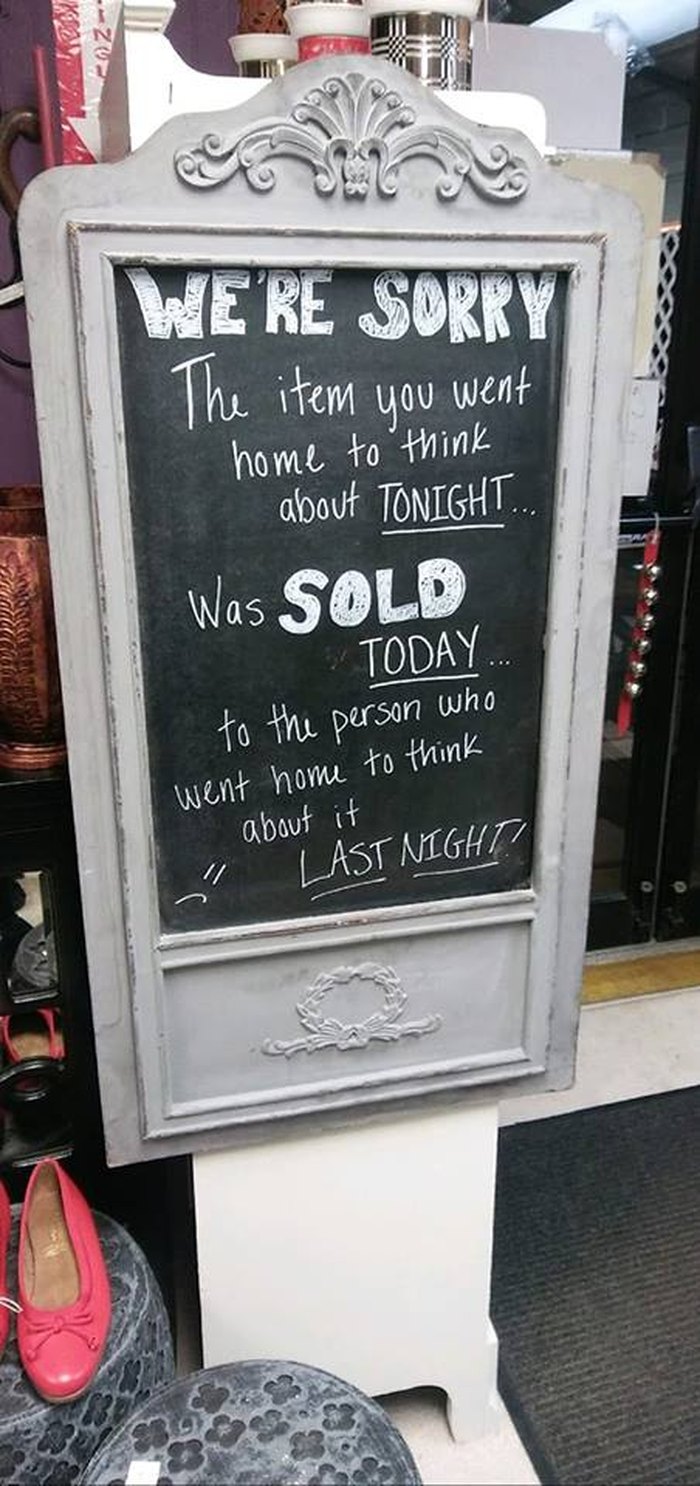 WE'RE SORRY
The item you went
home to think
about TONIGHT...
Was SOLD
TODAY...
to the person who
went home to think
about it
LAST NIGHT!